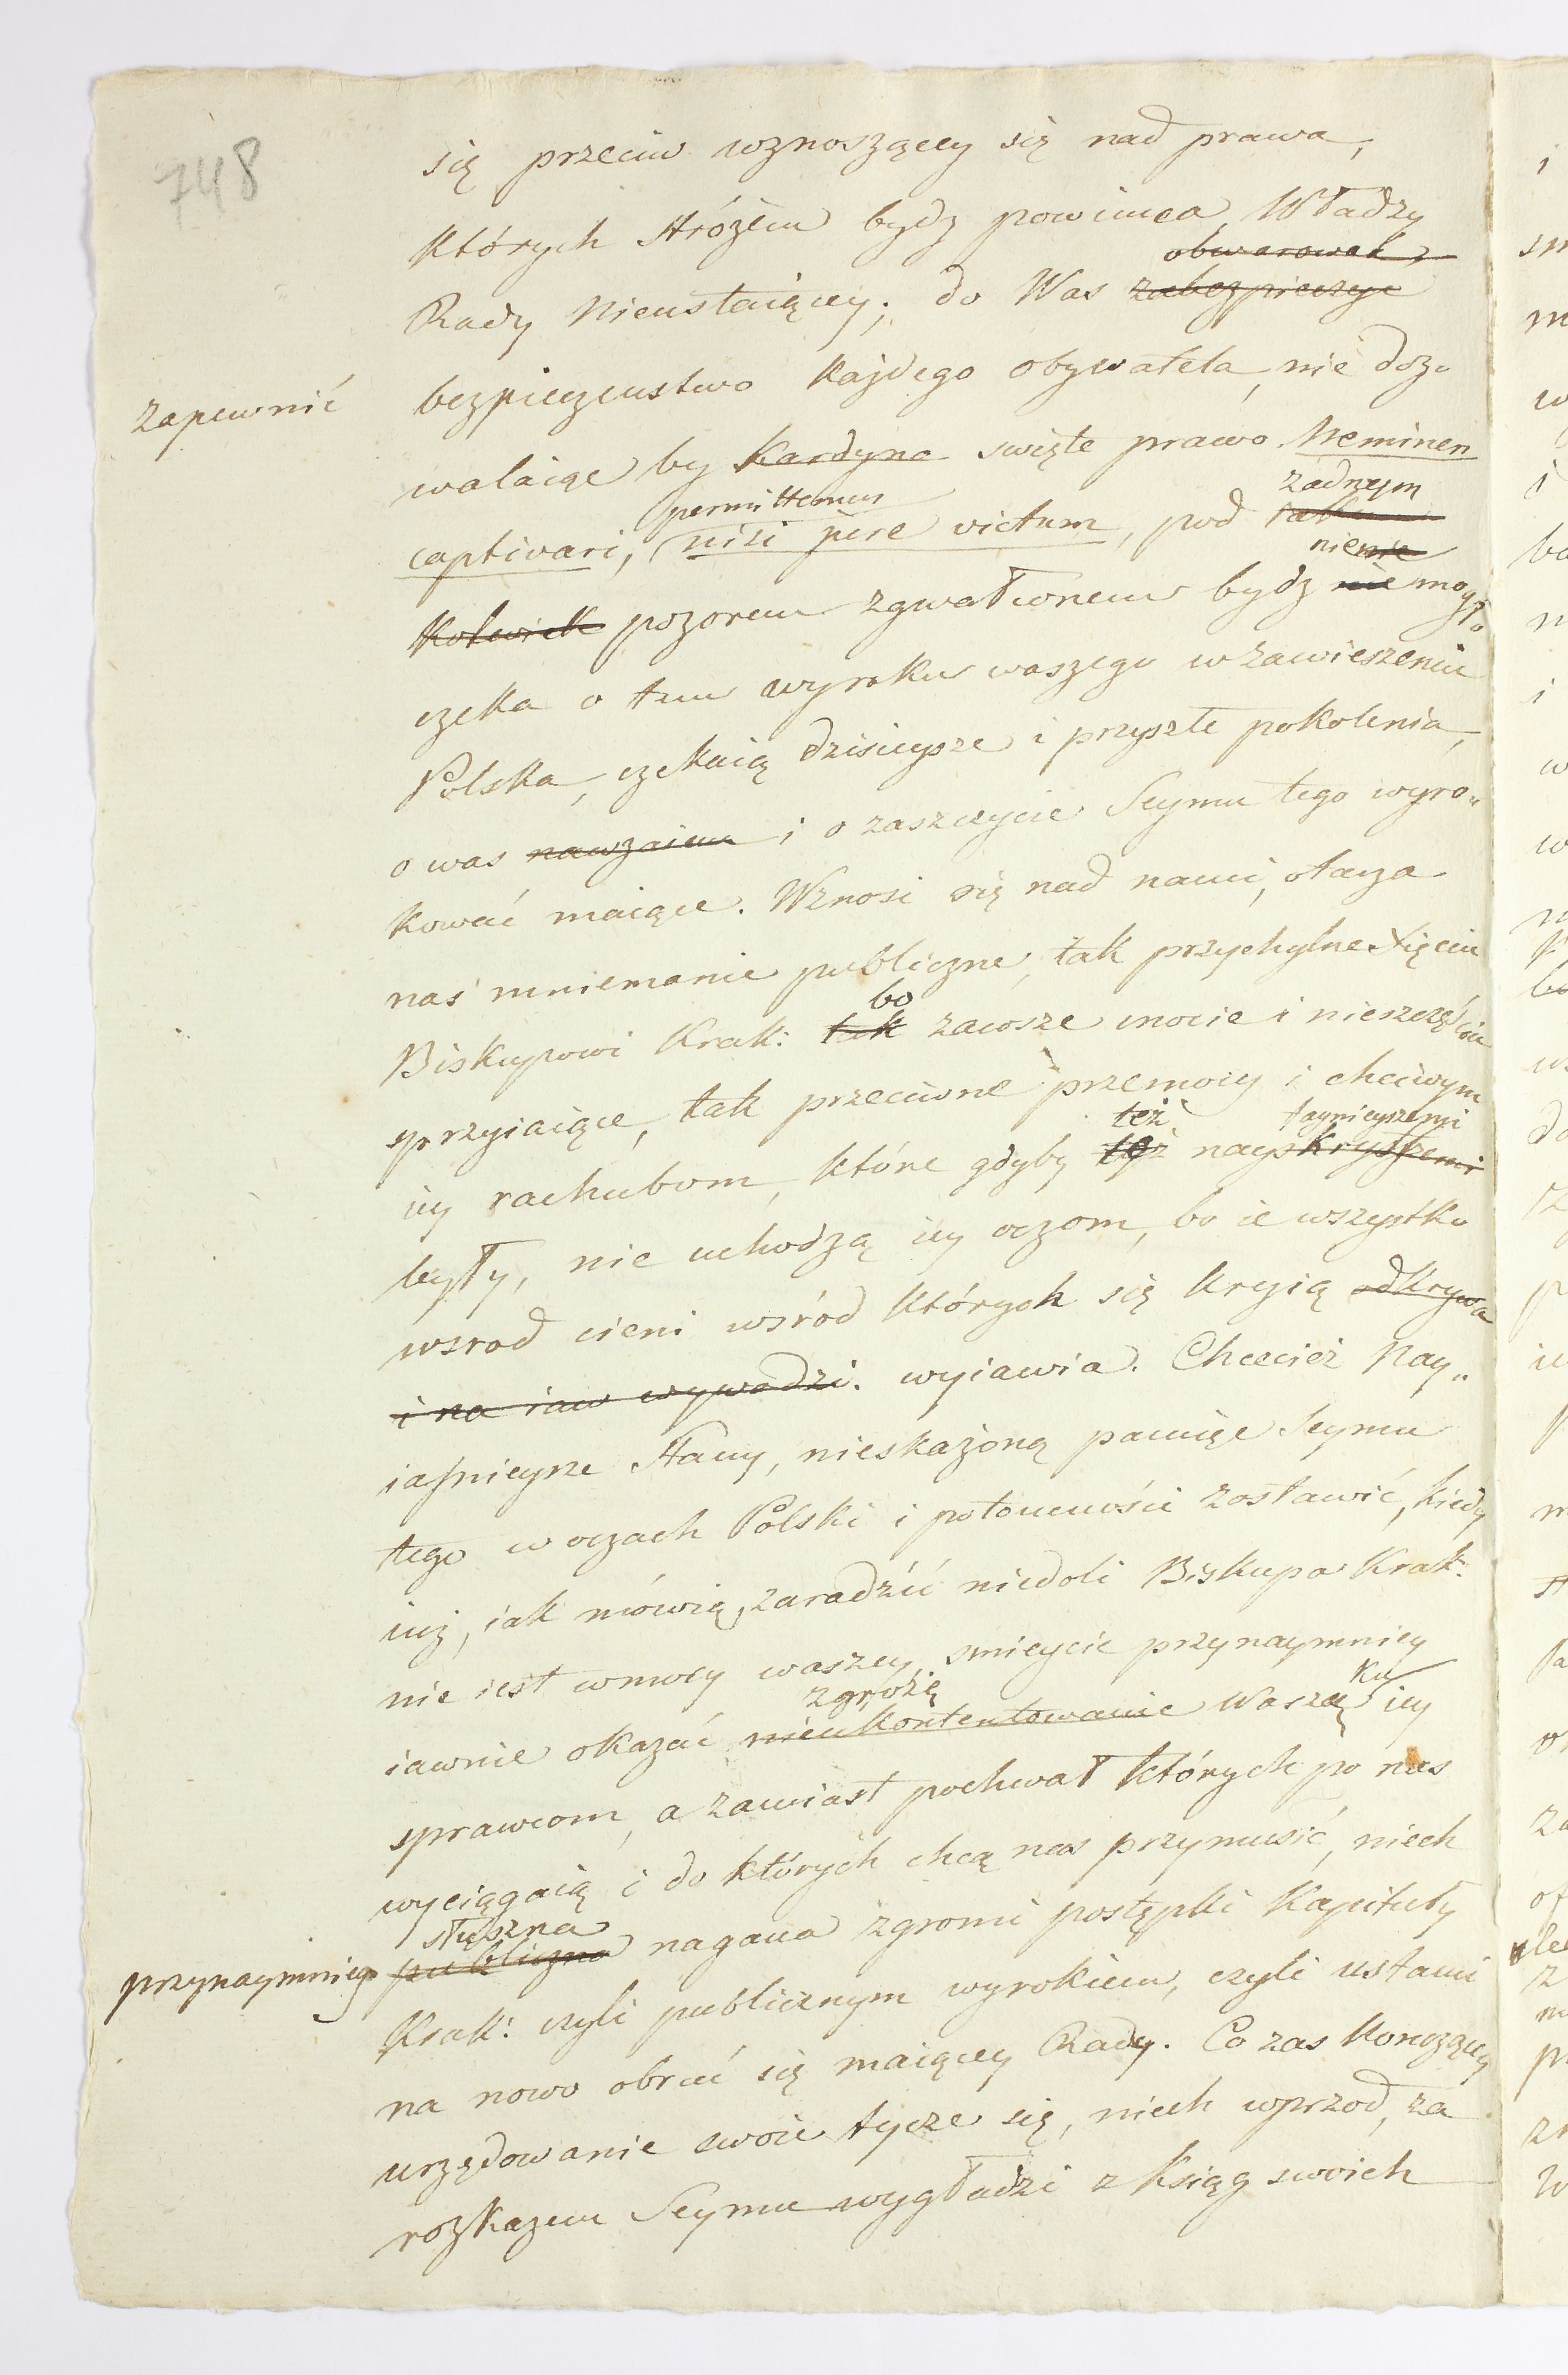 748
się przeciw wznoszącey się nad prawa,
których stróżem bydz powinna, Władzy
obwarować
Rady Nieustaiącey; do Was zabezpieczyć
zapewnić
bezpieczenstwo każdego obywatela, nie dozo
walaiąc by Kardyna swięte prawo Neminem
permittemus
żadnym
captivari, nisi jure victum, pod
nienie
kolwiek pozorem zgwałconem bydz nie mogło
czeka o tem wyroku waszego w zawieszeniu
Polska, czekaią dzisieysze i przyszłe pokolenia,
o was nawzaiem i o zaszczycie Seymu tego wyro„
kować maiące. Wznosi się nad nami, otacza
nas mniemanie publiczne, tak przychylne Xięciu
bo
Biskupowi Krak: tak zawsze cnocie i nieszczęściu
sprzyiaiące, tak przeciwne przemocy i chciwym
też
taynieyszemi
iey rachubom, które gdyby też nayskrytszemi
były, nie uchodzą iey oczom, bo ie wszystko
wsrod cieni wsród których się kryią odkrywa
i na iaw wywodzi. wyiawia. Chcecież Nay„
iaśnieysze Stany, nieskażoną pamięc Seymu
tego w oczach Polski i potomności zostawić, kiedy
iuż, iak mówią, zaradzić niedoli Biskupa Krak:
nie iest w mocy waszey, smieycie przynaymniey
zgrozę
ku
iawnie okazać nieukontentowanie Waszą iey
sprawcom, a zamiast pochwał których po nas
wyciągaią i do których chcą nas przymusić, niech
słuszna
przynaymniey
publiczna nagana zgromi postępki Kapituły
Krak: czyli publicznym wyrokiem, czyli ustami
na nowo obrać się maiącey Rady. Co zas konczącey
urzędowanie swoie tycze się, niech wprzod, za
rozkazem Seymu wygładzi z ksiąg swoich